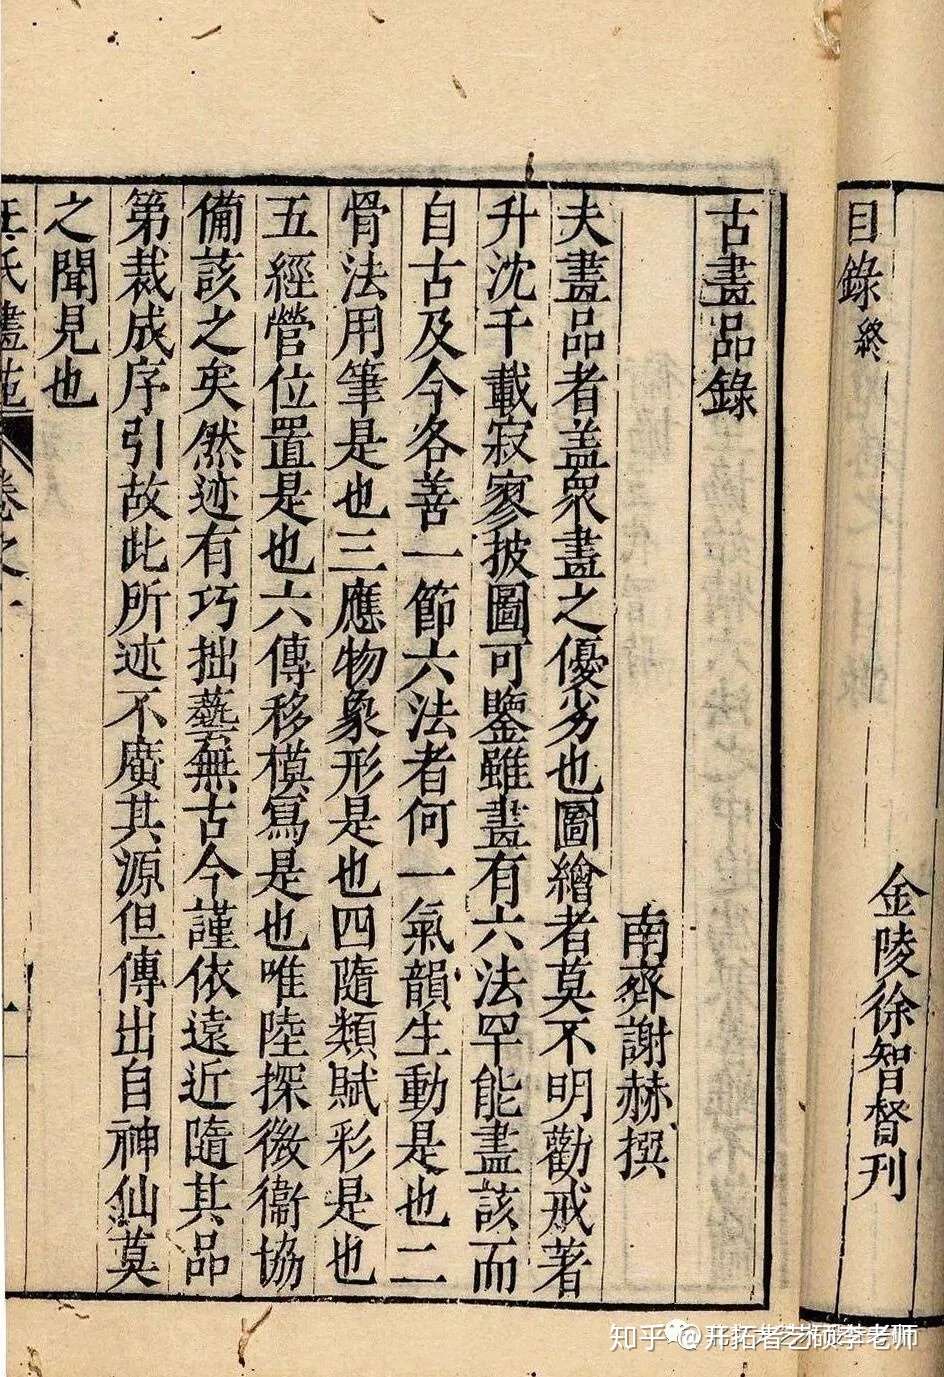 目錄終
金陵徐智督刊
古畫品錄
南齊謝赫撰
夫畫品者蓋衆畫之優劣也圖繪者莫不明勸戒著
升沈千載寂寥披圖可鑒雖畫有六法罕能盡該而
自古及今各善一節六法者何一氣韻生動是也二
骨法用筆是也三應物象形是也四隨類賦彩是也
五經營位置是也六傳移模寫是也唯陸探微衞協
備該之矣然迹有巧拙藝無古今謹依遠近隨其品
第裁成序引故此所述不廣其源但傳出自神仙莫
之聞見也
王氏畫苑 卷之一
知乎 @开拓者艺硕李老师